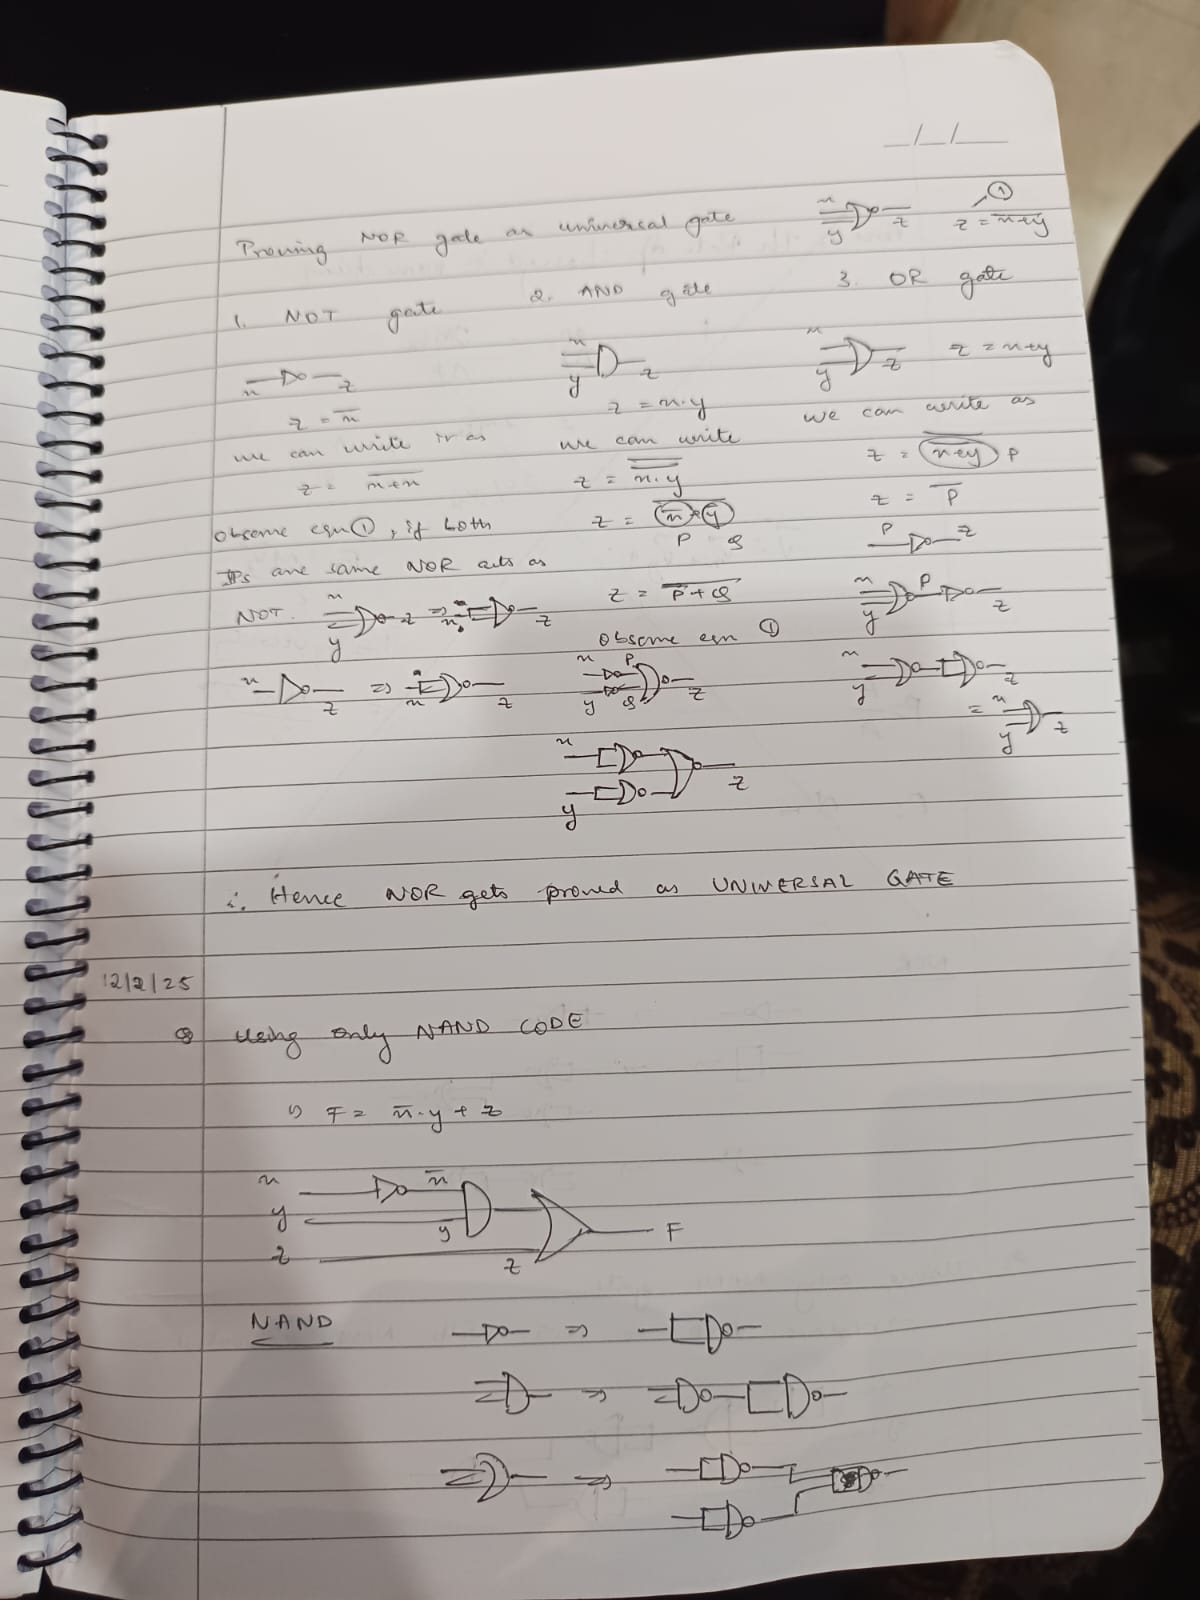 _/_/___
Proving NOR gate as universal gate
x y z ① z = \overline{x+y}
1. NOT gate
x z
z = \overline{x}
we can write it as
z = \overline{x+x}
observe eqn ①, if both
IPs are same NOR acts as
NOT. x y z ⇒ x z
x z ⇒ x z
2. AND gate
x y z
z = x.y
we can write
z = \overline{\overline{x.y}}
z = \overline{\overline{x}+\overline{y}}
P Q
z = \overline{P+Q}
observe eqn ①
x P y Q z
x y z
3. OR gate
x y z z = x+y
we can write as
z = \overline{\overline{x+y}} P
z = \overline{P}
P z
x y P z
x y z
= x y z
∴ Hence NOR gets proved as UNIVERSAL GATE
12/2/25
Q Using only NAND CODE
1) F = \overline{x}.y + z
x \overline{x}
y y F
z z
NAND ⇒
⇒
⇒